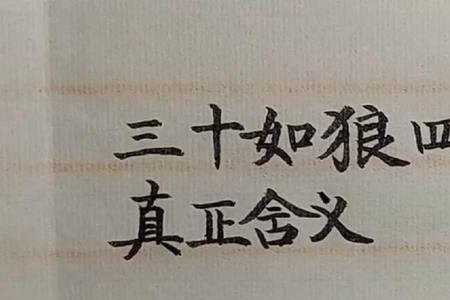 三十如狼四
真正含义